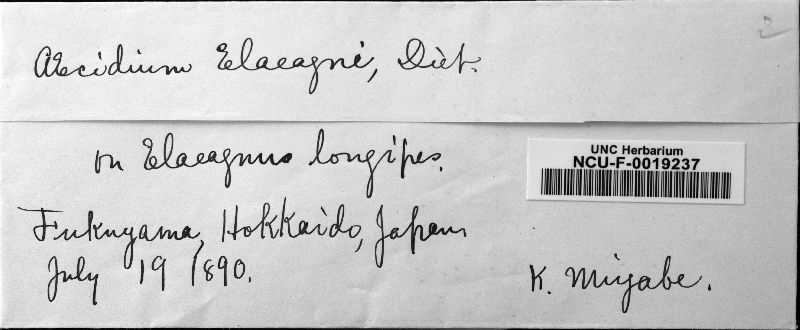 Æcidium Elaeagni, Diet.
on Elaeagnus longipes.
UNC Herbarium
NCU-F-0019237
Fukuyama, Hokkaido, Japan
July 19 1890.
K. Miyabe.